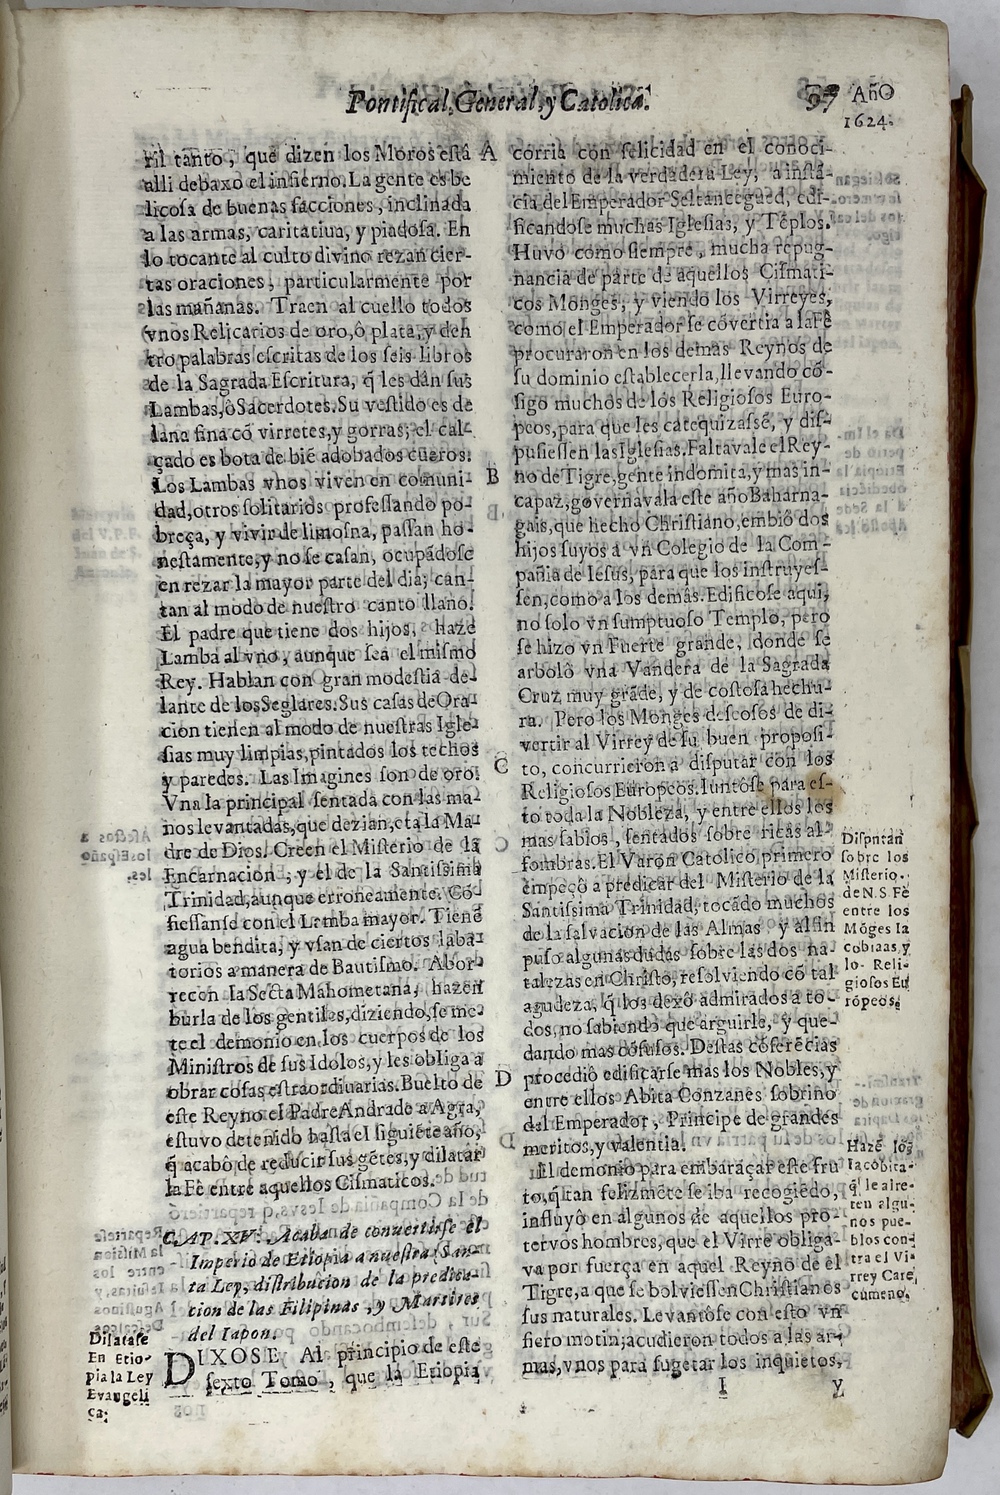 Pontifical, General, y Catolica. 97 Año
1624.
ril tanto, que dizen los Moros està
alli debaxo el infierno. La gente es be
licosa de buenas facciones, inclinada
a las armas, caritatiua, y piadosa. En
lo tocante al culto divino rezan cier-
tas oraciones, particularmente por
las mañanas. Traen al cuello todos
vnos Relicarios de oro, ô plata, y den
tro palabras escritas de los seis libros
de la Sagrada Escritura, q̃ les dàn sus
Lambas, ò Sacerdotes. Su vestido es de
lana fina cõ virretes, y gorras; el cal-
çado es bota de biẽ adobados cueros.
Los Lambas vnos viven en comuni-
dad, otros solitarios professando po-
breça, y vivir de limosna, passan ho-
nestamente, y no se casan, ocupãdose
en rezar la mayor parte del dia; can-
tan al modo de nuestro canto llano.
El padre que tiene dos hijos, haze
Lamba al vno, aunque sea el mismo
Rey. Hablan con gran modestia de-
lante de los Seglares. Sus casas de Ora-
cion tienen al modo de nuestras Igle-
sias muy limpias, pintados los techos
y paredes. Las Imagines son de oro.
Vna la principal sentada con las ma-
nos levantadas, que dezian, era la Ma-
dre de Dios. Creen el Misterio de la
Encarnacion, y el de la Santissima
Trinidad, aunque erroneamente. Cõ-
fiessanse con el Lamba mayor. Tienẽ
agua bendita, y vsan de ciertos laba-
torios a manera de Bautismo. Abor-
recen la Secta Mahometana, hazen
burla de los gentiles, diziendo, se me-
te el demonio en los cuerpos de los
Ministros de sus Idolos, y les obliga a
obrar cosas estraordiuarias. Buelto de
este Reyno el Padre Andrade a Agra,
estuvo detenido hasta el siguiẽte año,
q̃ acabò de reducir sus gẽtes, y dilatar
la Fè entre aquellos Cismaticos.
CAP. XV. Acaba de conuertirse el
Imperio de Etiopia a nuestra San-
ta Ley, distribucion de la predica-
cion de las Filipinas, y Martires
del Iapon.
Dilatase
En Etio-
pia la Ley
Evangeli
ca.
DIXOSE Al principio de este
sexto Tomo, que la Etiopia
A
B
C
D
corria con felicidad en el conoci-
miento de la verdadera Ley, a instã-
cia del Emperador Seltancegued, edi-
ficandose muchas Iglesias, y Tẽplos.
Huvo como siempre, mucha repug-
nancia de parte de aquellos Cismati-
cos Monges; y viendo los Virreyes,
como el Emperador se cõvertia a la Fè
procuraron en los demas Reynos de
su dominio establecerla, llevando cõ-
sigo muchos de los Religiosos Euro-
peos, para que les catequizassẽ, y dis-
pusiessen las Iglesias. Faltavale el Rey-
no de Tigre, gente indomita, y mas in-
capaz, governavala este año Baharna-
gais, que hecho Christiano, embiò dos
hijos suyos a vn Colegio de la Com-
pañia de Iesus, para que los instruyes-
sen, como a los demàs. Edificose aqui,
no solo vn sumptuoso Templo, pero
se hizo vn Fuerte grande, donde se
arbolò vna Vandera de la Sagrada
Cruz muy grãde, y de costosa hechu-
ra. Pero los Monges deseosos de di-
vertir al Virrey de su buen proposi-
to, concurrieron a disputar con los
Religiosos Europeos. Iuntòse para es-
to toda la Nobleza, y entre ellos los
mas sabios, sentados sobre ricas al-
fombras. El Varon Catolico primero
empeçò a predicar del Misterio de la
Santissima Trinidad, tocãdo muchos
de la salvacion de las Almas y al fin
puso algunas dudas sobre las dos na-
talezas en Christo, resolviendo cõ tal
agudeza, q̃ los dexò admirados a to-
dos, no sabiendo que arguirle, y que-
dando mas cõfusos. Destas cõferẽcias
procediò edificarse mas los Nobles, y
entre ellos Abita Conzanes sobrino
del Emperador, Principe de grandes
meritos, y valentia.
El demonio para embaraçar este fru
to, q̃ tan felizmẽte se iba recogiẽdo,
influyò en algunos de aquellos pro-
tervos hombres, que el Virre obliga-
va por fuerça en aquel Reyno de el
Tigre, a que se bolviessen Christianos
sus naturales. Levantòse con esto vn
fiero motin; acudieron todos a las ar-
mas, vnos para sugetar los inquietos,
I y
Dispntan
sobre los
Misterio.
de N. S. Fè
entre los
Mõges Ia
cobiaas, y
lo. Reli-
giosos Eu
ropeos.
Haze los
Iacobita-
q̃ le alre-
ten algu-
nos pue-
blos con-
tra el Vi-
rrey Care
cumeno.